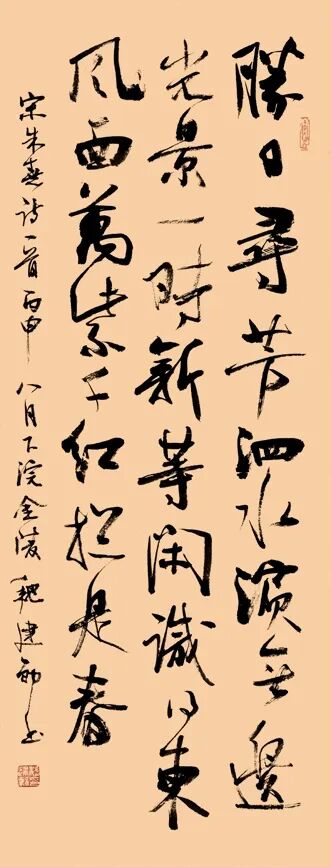 勝日尋芳泗水濱無邊
光景一時新等閑識得東
風面萬紫千紅総是春
宋朱熹詩一首丙申八月下浣金陵魏建勋书